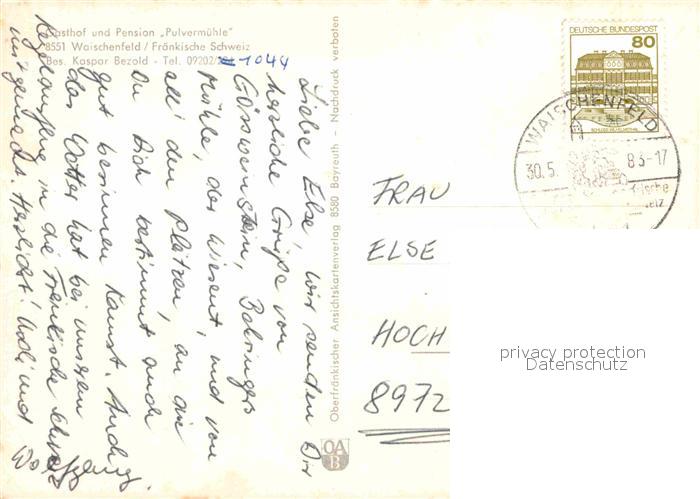 Gasthof und Pension „Pulvermühle"
8551 Waischenfeld / Fränkische Schweiz
Bes. Kaspar Bezold - Tel. 09202/ 1044
Liebe Else, wir senden Dir
herzliche Grüße von
Gössweinstein, Behringers
Mühle, der Wiesent, und von
all' den Plätzen, an die
Du Dich bestimmt auch
gut besinnen kannst. Auch
das Wetter hat bei unserem
Kegelausflug in die Fränkische Schweiz
mitgemacht. Herzlichst! und
Wolfgang.
Oberfränkischer Ansichtskartenverlag 8580 Bayreuth - Nachdruck verboten
OA
B
DEUTSCHE BUNDESPOST
80
SCHLOSS WILHELMSTHAL
WAISCHENFELD
30.5. 83-17
FRAU
ELSE
HOCH
8972
privacy protection
Datenschutz